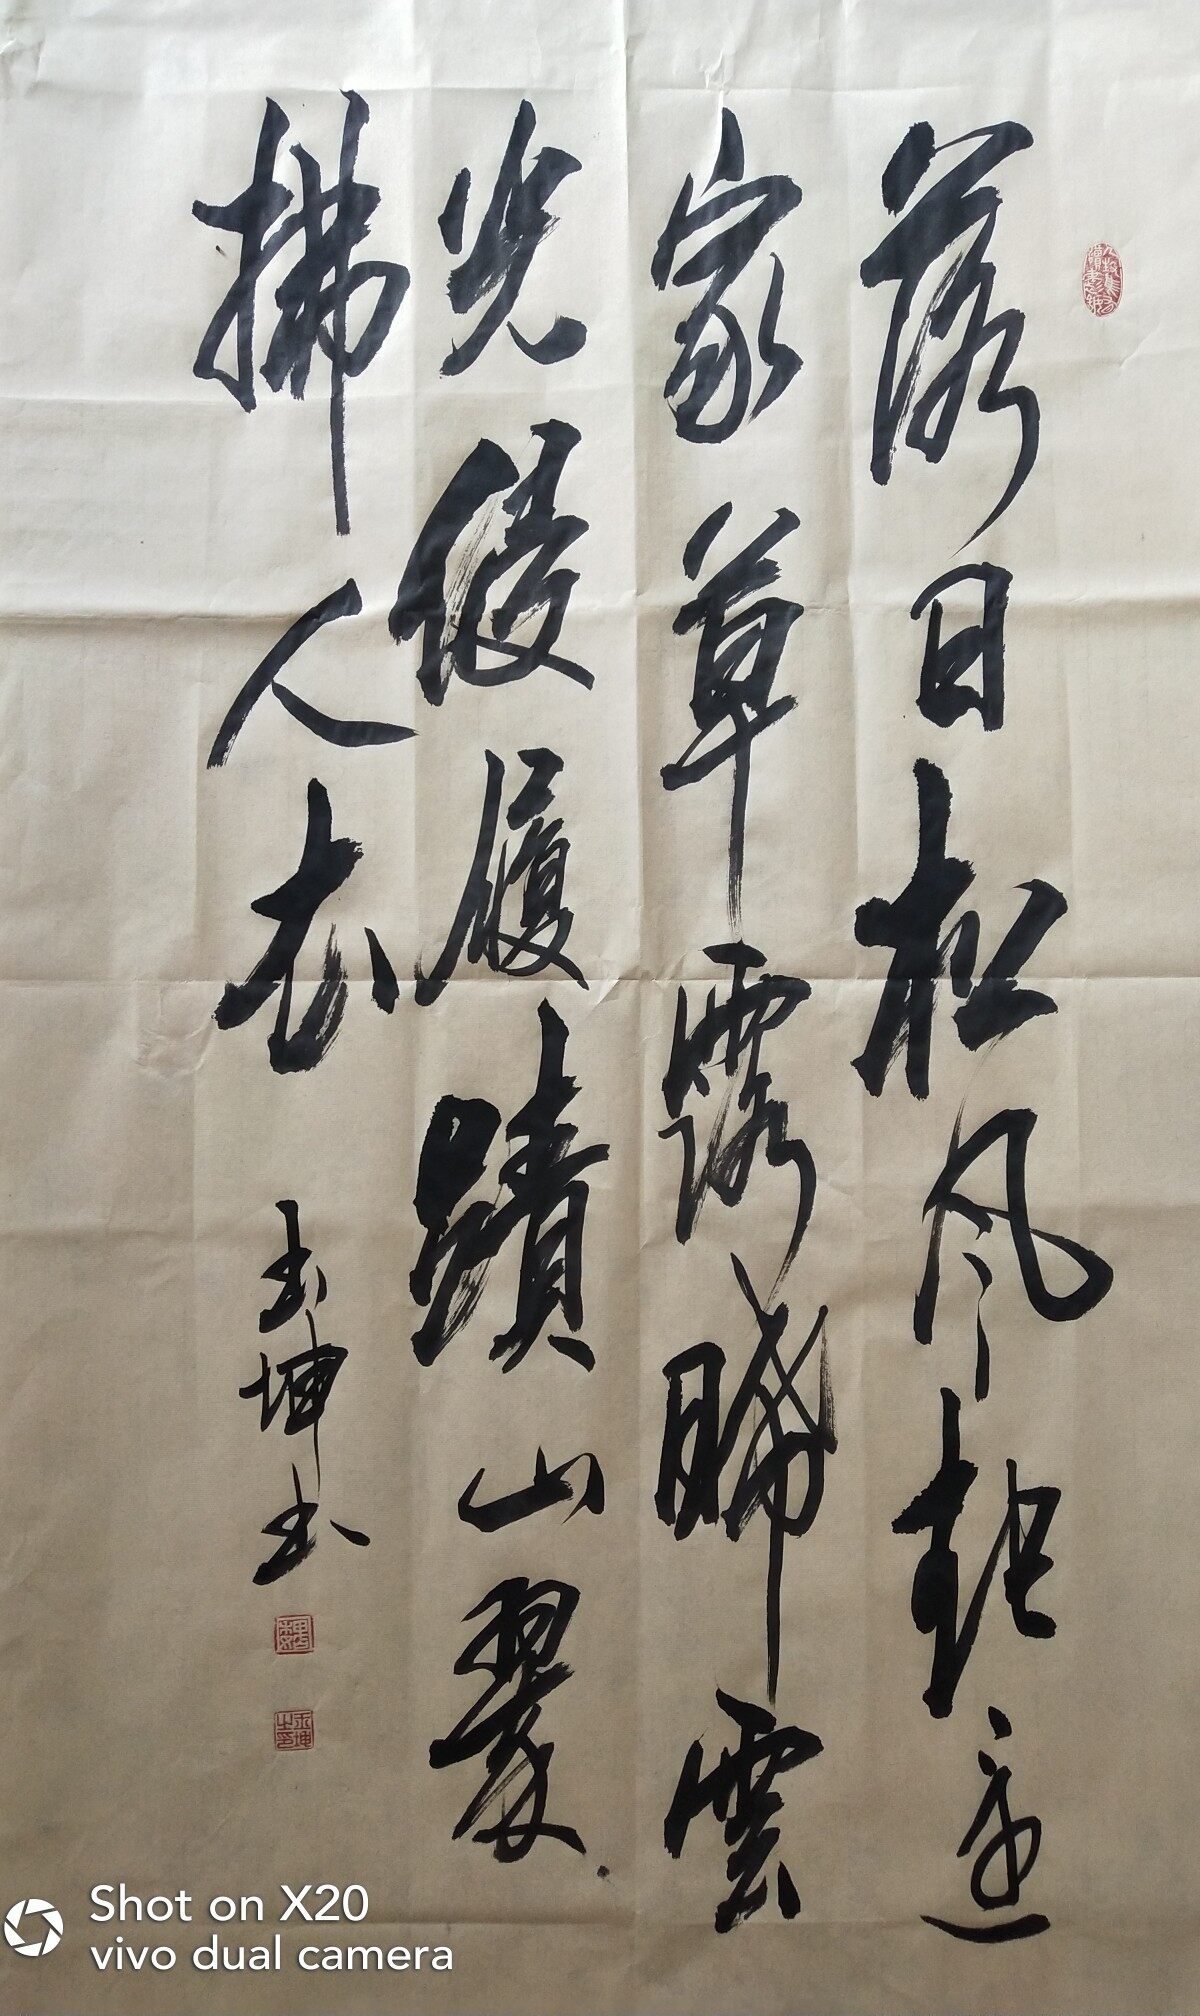 落日松风起还
家草露晞雲
光侵履蹟山翠
拂人衣
玉坤书
Shot on X20
vivo dual camera